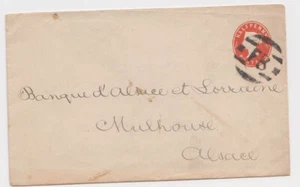 HALFPENNY
Banque d'Alsace et Lorraine
Mulhouse
Alsace